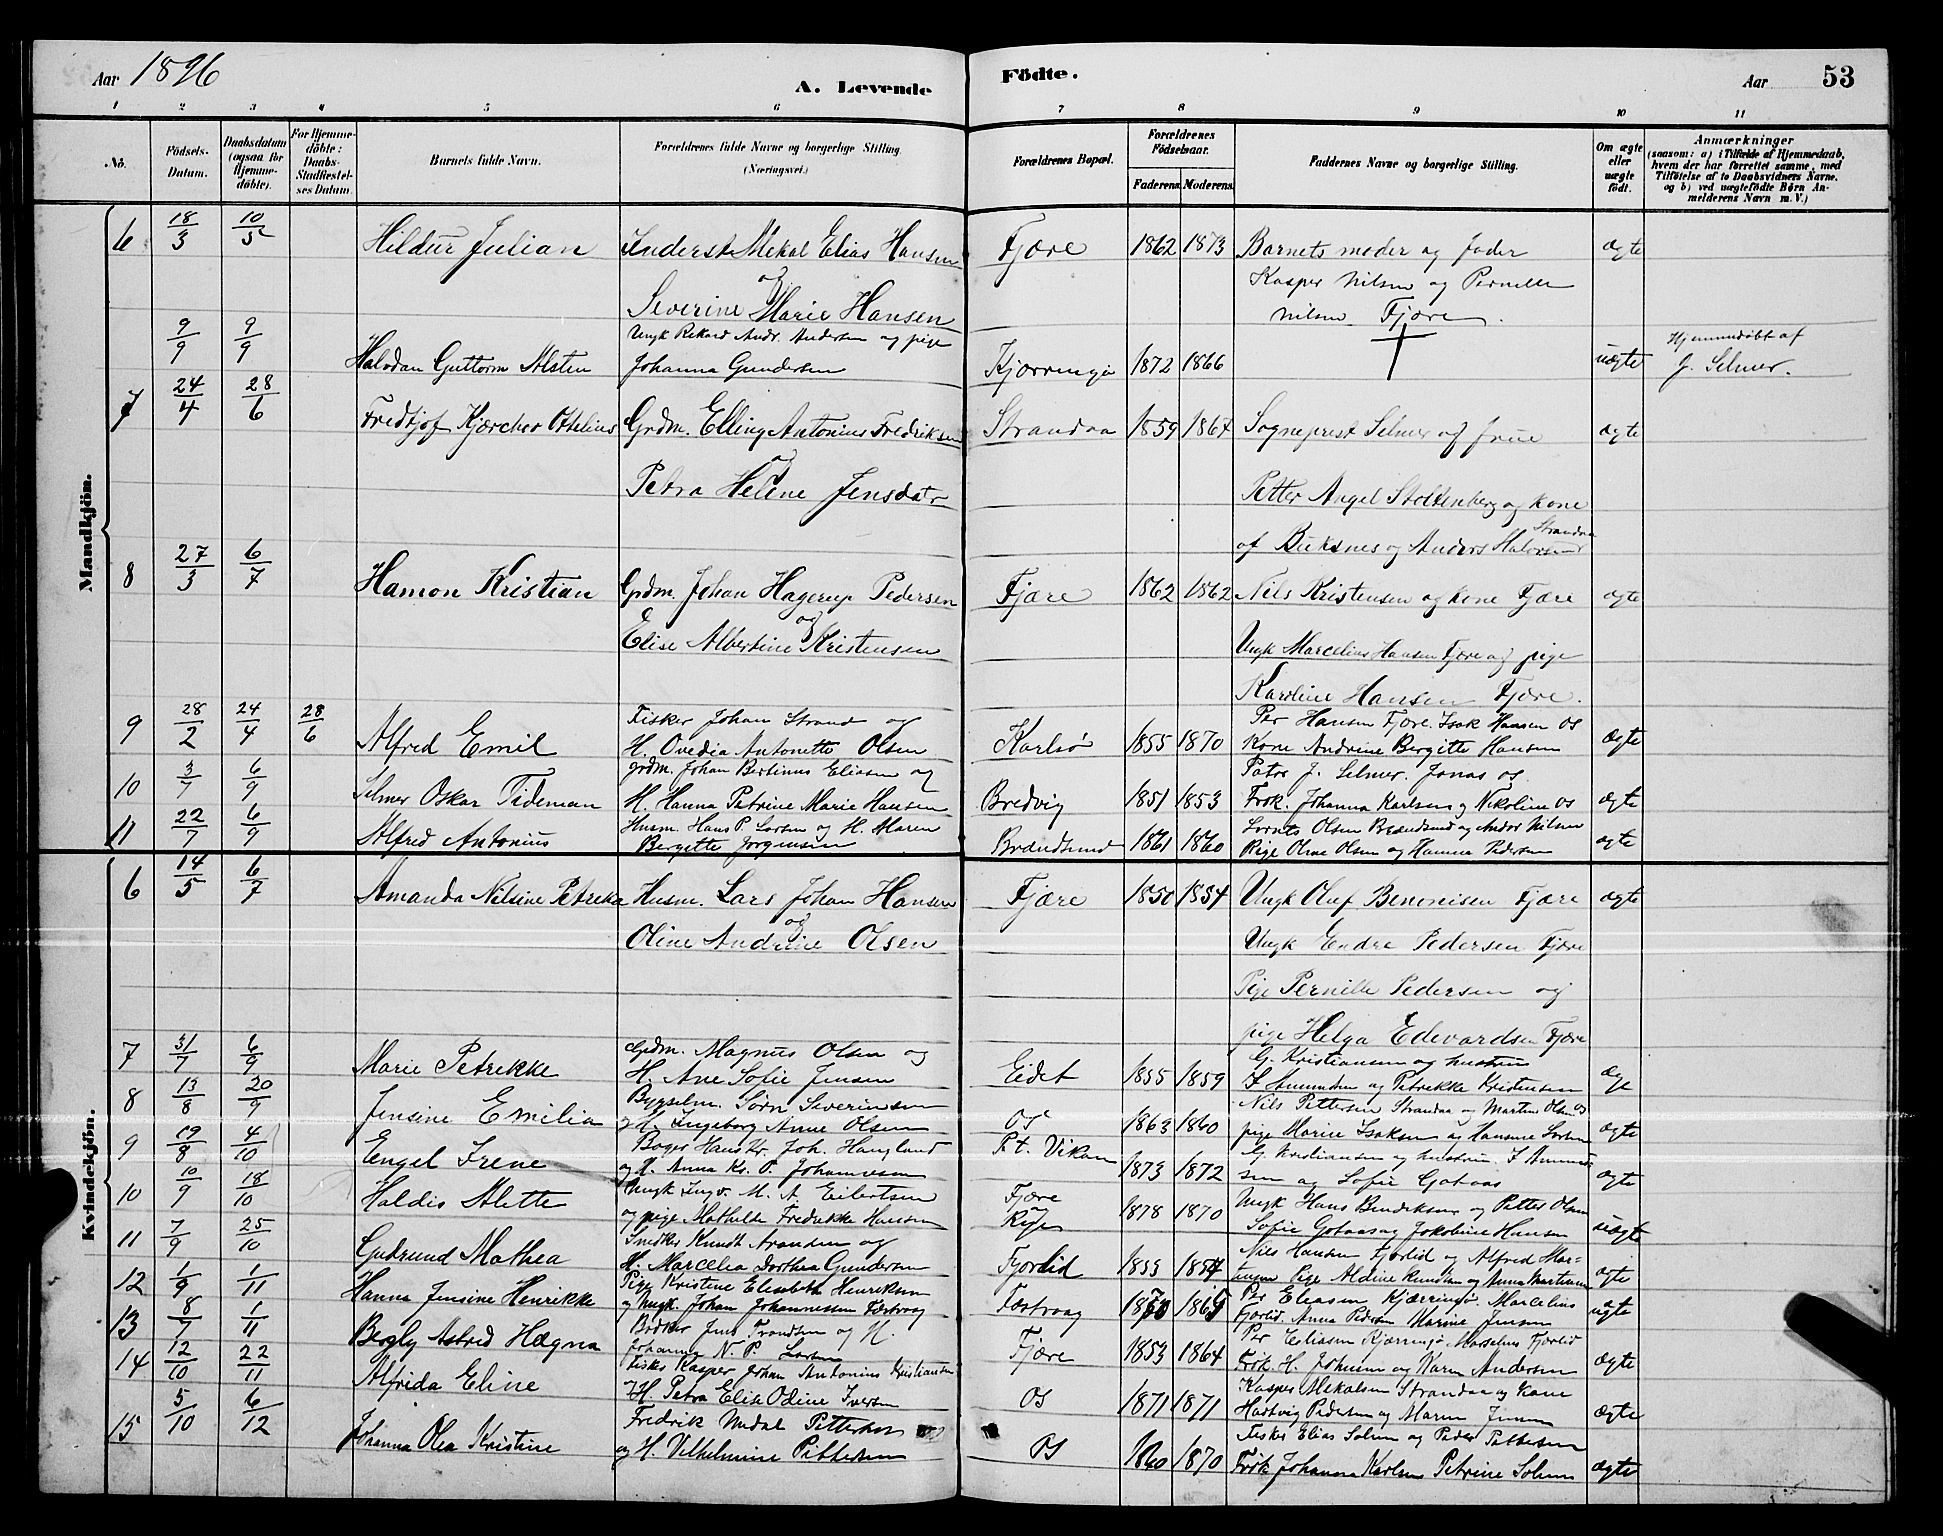 Aar 1896 A. Levende Födte. Aar 53
1 2 3 4 5 6 7 8 9 10 11
No. Födsels-Datum. Daabsdatum (ogsaa for Hjemme-döbte). For Hjemme-döbte: Daabs-Stadfæstel-ses Datum. Barnets fulde Navn. Forældrenes fulde Navne og borgerlige Stilling. (Næringsvei.) Forældrenes Bopæl. Forældrenes Födselsaar. Faderens. Moderens. Faddernes Navne og borgerlige Stilling. Om ægte eller uægte födt. Anmærkninger (saasom: a) i Tilfælde af Hjemmedaab, hvem der har forrettet samme, med Tilföielse af to Daabsvidners Navne, og b) ved uægtefödte Börn An-melderens Navn m. V.)
Mandkjön.
6 18/3 10/5 Hildur Julian Inderst Mekal Elias Hansen Fjære 1862 1873 Barnets moder og fader ægte
og Kasper Nilsen og Pernille
Severine Marie Hansen Nilsen Fjære.
9/9 9/9 Halvdan Guttorm Alsten Ungk Rikard Andr. Andersen og pige Hjemmedøbt af
Johanna Gundersen Kjærringø 1872 1866 uægte J. Selmer.
7 24/4 28/6 Fredtjof Kjærcher Ottelius Grdm. Elling Antonius Fredriksen Strandaa 1859 1867 Sogneprest Selmer og frue ægte
og
Petra Helene Jensdatr Petter Angel Stoltenberg og kone
af Buksnes og Anders Halvorsen Strandaa
8 27/3 6/7 Hamon Kristian Grdm. Johan Hagerup Pedersen Fjære 1862 1862 Nils Kristensen og kone Fjære ægte
og
Elise Albertine Kristensen Ungk Marcelius Hansen Fjære og pige
Karoline Hansen Fjære.
9 28/2 24/4 28/6 Alfred Emil Fisker Johan Strand og Per Hansen Fjære. Isak Hansen Os
H. Ovedia Antonette Olsen Karlsø 1855 1870 Kone Andrine Bergitte Hansen ægte
10 3/7 6/9 Selmer Oskar Tideman grdm. Johan Bertinus Eliasen og J. Selmer. Jonas Os.
H. Hanna Petrine Marie Hansen Bredvig 1851 1853 Frøk. Johanna Karlsen og Nikoline Os ægte
11 22/7 6/9 Alfred Antonius Husm. Hans P. Larsen og H. Maren Olsen Brændsund og Andor Nilsen
Bergitte Jørgensen Brændsund 1861 1860 Pige Oline Olsen og Hanna Pedersen ægte
Kvindekjön.
6 14/5 6/7 Amanda Nilsine Petrikka Husm. Lars Johan Hansen Fjære 1850 1854 Ungk Oluf Benonisen Fjære ægte
og
Oline Andrine Olsen Ungk Endre Pedersen Fjære
Pige Pernille Pedersen og
pige Helga Edevardsen Fjære
7 31/7 6/9 Marie Petrekke Grdm. Magnus Olsen og G. Kristiansen og hustru
H. Ane Sofie Jensen Eidet 1855 1859 Amundsen og Petrekke Kristensen
8 13/8 20/9 Jensine Emilia Bygselm. Sørn Severinsen Nils Pettersen Strandaa og Martin Olsen Os
og H. Ingeborg Anne Olsen Os 1863 1860 pige Marie Isaksen og Hansine Larsen ægte
9 19/8 4/10 Engel Irene Bager Hans Kr. Joh. Haugland Pt. Vikan G. Kristiansen og hustru.
og H. Anna Kr. P. Johannesen 1873 1872 og Sofie Gotaas ægte
10 10/9 18/10 Haldis Alette Ungk Ingv. M. A. Eilertsen Fjære Ungk Hans Bendiksen og Petter Olsen
og pige Mathilde Fredrikke Hansen 1878 1870 Sofie Gotaas og Jakobine Hansen uægte
11 7/9 25/10 Gudrund Mathea Snedker Knudt Arandsen og Nils Hansen Fjorlid og Alfred Mar-
H. Marcelia Dorthea Gundersen Fjorlid 1853 1854 tinsen Pige Aldine Knudsen og Anna Martinsen ægte
12 1/9 1/11 Hanna Jensine Henrikke Pige Kristine Elisabeth Henriksen Per Eliasen Kjærringø. Marcelius
og Ungk. Johan Johannessen Festvaag Festvaag 1870 1865 Fjorlid. Anna Pedersen Marine Jensen uægte
13 8/7 1/11 Bergly Astrid Hægna Bødker Jens Frandsen og H. Per Eliasen Kjærringø Marselius Fjorlid
Johanna N. P. Larsen Fjære 1853 1864 Frøk. H. Johnsen og Karen Andersen ægte
14 12/10 22/11 Alfrida Eline Fisker Kasper Johan Antonius Kristiansen Kasper Mekalsen Strandaa og kone
H. Petra Elise Odine Iversen Os 1871 1871 Hartvig Pedersen og Maren Jensen ægte
15 5/10 6/12 Johanna Olea Kristine Fredrik Nudal Pettersen Fisker Elias Solum og Peder Pettersen
og H. Vilhelmine Pettersen Os 1860 1870 Frøk Johanna Karlsen Petrine Solum ægte